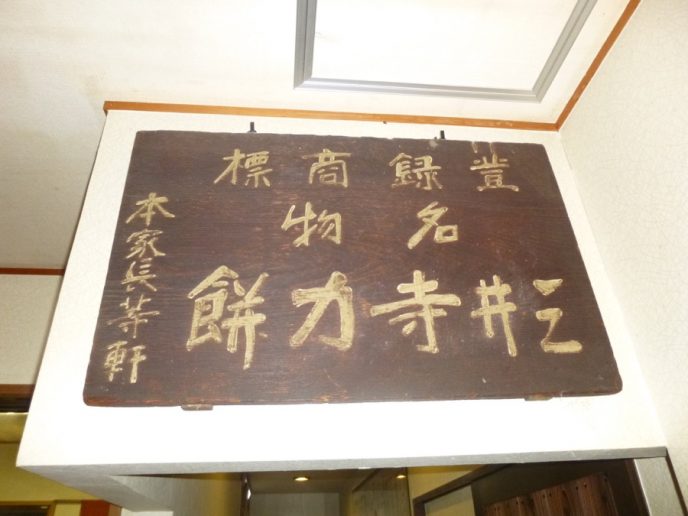 登録商標
名物
三井寺力餅
本家長等軒